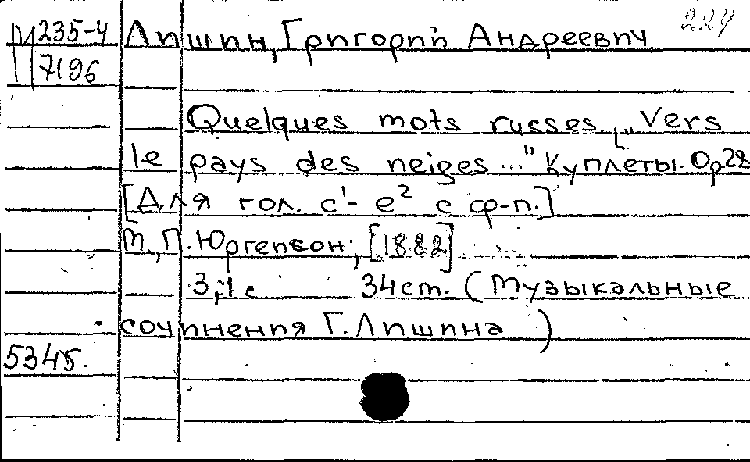 224
М 235-4 Липин, Григорий Андреевич
7196
Quelques mots russes „Vers
le pays des neiges..." Куплеты. Op 28
[Для гол. c¹- e² с ф-п.]
М., П. Юргенсон, [1882]
3,1 с 34 ст. (Музыкальные
сочинения Г. Лишина)
5345.